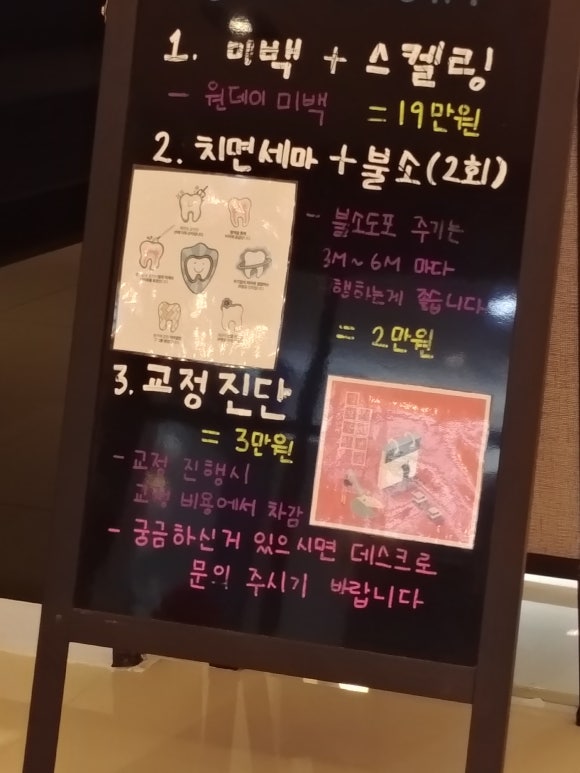 1. 미백 + 스켈링
- 원데이 미백 = 19만원
2. 치면세마 + 불소(2회)
- 불소도포 주기는
3M ~ 6M 마다
행하는게 좋습니다.
= 2만원
3. 교정진단
= 3만원
- 교정 진행시
교정 비용에서 차감
- 궁금하신거 있으시면 데스크로
문의 주시기 바랍니다